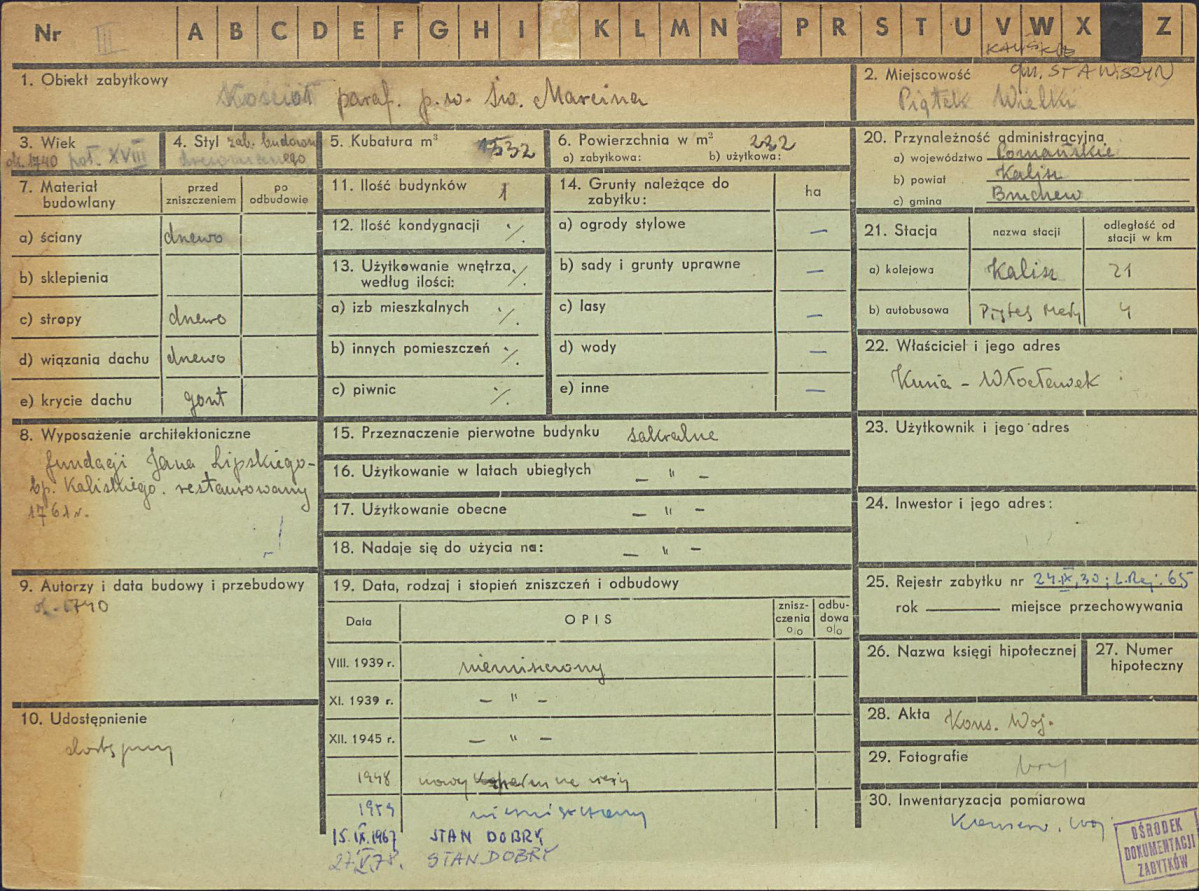 Nr III A B C D E F G H I K L M N P R S T U V W X Z
1. Obiekt zabytkowy
Kościół paraf. p.w. św. Marcina
2. Miejscowość
KALISKIE
gm. STAWISZYN
Piątek Wielki
3. Wiek
ok. 1740 poł. XVIII
4. Styl zab. budown.
drewnianego
5. Kubatura m³ 1532
6. Powierzchnia w m² 282
a) zabytkowa: b) użytkowa:
20. Przynależność administracyjna
a) województwo Poznańskie
b) powiat Kalisz
c) gmina
7. Materiał budowlany
przed zniszczeniem
po odbudowie
a) ściany drewo
b) sklepienia
c) stropy drewo
d) wiązania dachu drewo
e) krycie dachu gont
11. Ilość budynków 1
12. Ilość kondygnacji ·/.
13. Użytkowanie wnętrza według ilości: ·/.
a) izb mieszkalnych ·/.
b) innych pomieszczeń ·/.
c) piwnic ·/.
14. Grunty należące do zabytku:
ha
a) ogrody stylowe —
b) sady i grunty uprawne —
c) lasy —
d) wody —
e) inne —
21. Stacja
nazwa stacji
odległość od stacji w km
a) kolejowa Kalisz 21
b) autobusowa Piątek Mały 4
22. Właściciel i jego adres
Kuria - Włocławek
8. Wyposażenie architektoniczne
fundacji Jana Lipskiego -
bp. Kaliskiego. restaurowany
1761 r.
15. Przeznaczenie pierwotne budynku sakralne
16. Użytkowanie w latach ubiegłych — " —
17. Użytkowanie obecne — " —
18. Nadaje się do użycia na: — " —
23. Użytkownik i jego adres
24. Inwestor i jego adres:
9. Autorzy i data budowy i przebudowy
ok. 1740
19. Data, rodzaj i stopień zniszczeń i odbudowy
Data
OPIS
znisz-
czenia
%
odbu-
dowa
%
VIII. 1939 r. niezniszczony
XI. 1939 r. — " —
XII. 1945 r. — " —
1948 nowy na wieży
1959 niezniszczony
15.IX.1967 STAN DOBRY
27.V.78. STAN DOBRY
25. Rejestr zabytku nr 24.IX.30; L.Rej. 65
rok miejsce przechowywania
26. Nazwa księgi hipotecznej
27. Numer hipoteczny
10. Udostępnienie
dostępny
28. Akta Kons. Woj.
29. Fotografie
30. Inwentaryzacja pomiarowa
Konserw. Woj.
OŚRODEK
DOKUMENTACJI
ZABYTKÓW